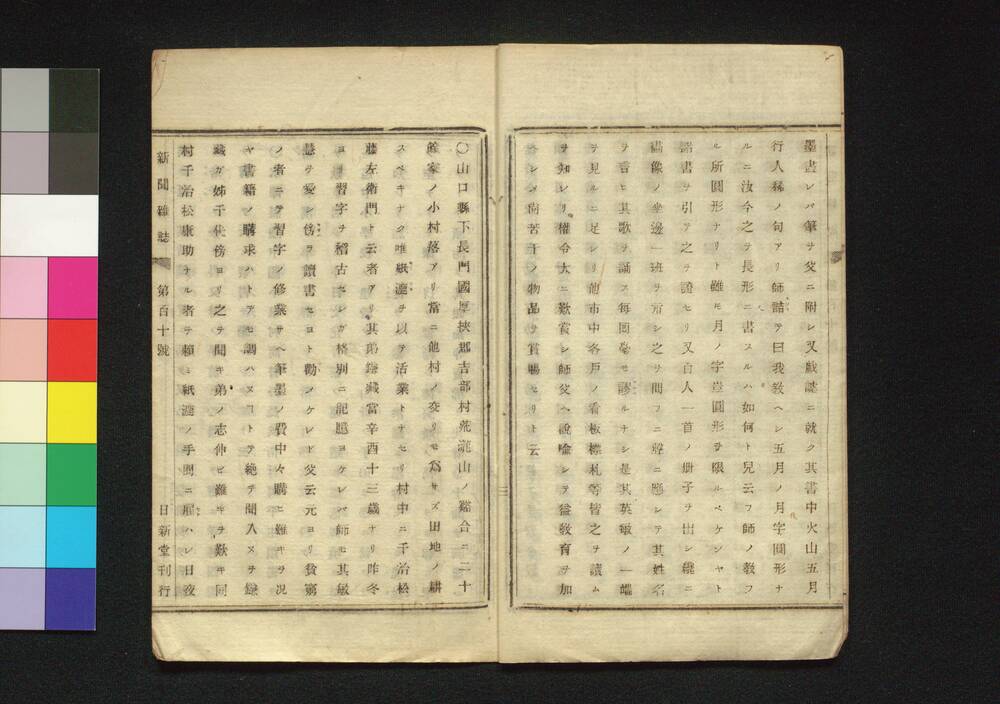 墨書レバ筆ヲ父ニ附シ又戯謔ニ就ク其書中火山五月
行人稀ノ句アリ師詰テ曰我教ヘシ五月ノ月字圓形ナ
ルニ汝今之テ長形ニ書スルハ如何ト兒云フ師ノ教フ
ル所圓形ナリト雖モ月ノ字豈圓形ヲ限ルベケンヤト
諸書ヲ引テ之ヲ證セリ又百人一首ノ册子ヲ出シ纔ニ
畫像ノ坐邊一班ヲ示シ之ヲ問フニ聲ニ應シテ其姓名
ヲ言ヒ其歌ヲ誦ス每回毫モ謬ルナシ是其英敏ノ一端
ヲ見ルニ足レリ他市中各戸ノ看板標札等皆之ヲ讀ム
ヲ知レリ權令大ニ歎賞シ師父ヘ說喩シテ益教育ヲ加
ヘシメ尚若干ノ物品ヲ賞賜セリト云
〇山口縣下長門國厚狹郡吉部村荒瀧山ノ谿合ニ二十
軒家ノ小村落アリ當ニ他村ノ交リモ爲サズ田地ノ耕
スベキナク唯紙漉ヲ以テ活業トナセリ村中ニ千治松
藤左衞門ト云者アリ其弟鎌藏當辛酉十三歲ナリ昨冬
ヨリ習字ヲ稽古セシガ格別ニ記臆ヨケレバ師モ其敏
慧ヲ愛シ傍ヲ讀書セヨト勸メケレド父云元ヨリ貧窮
ノ者ニテ習字ノ修業サヘ筆墨ノ費中々購ヒ難キヲ況
ヤ書籍ノ購求ハトテモ調ハヌコトテ絕テ聞入ヌヲ鎌
藏ガ姊千代傍ヨリ之ヲ聞キ弟ノ志伸ビ難キヲ歎キ同
村千治松康助ナル者ヲ賴ミ紙漉ノ手間ニ雇ハレ日夜
新聞雜誌 第百十號 日新堂刊行